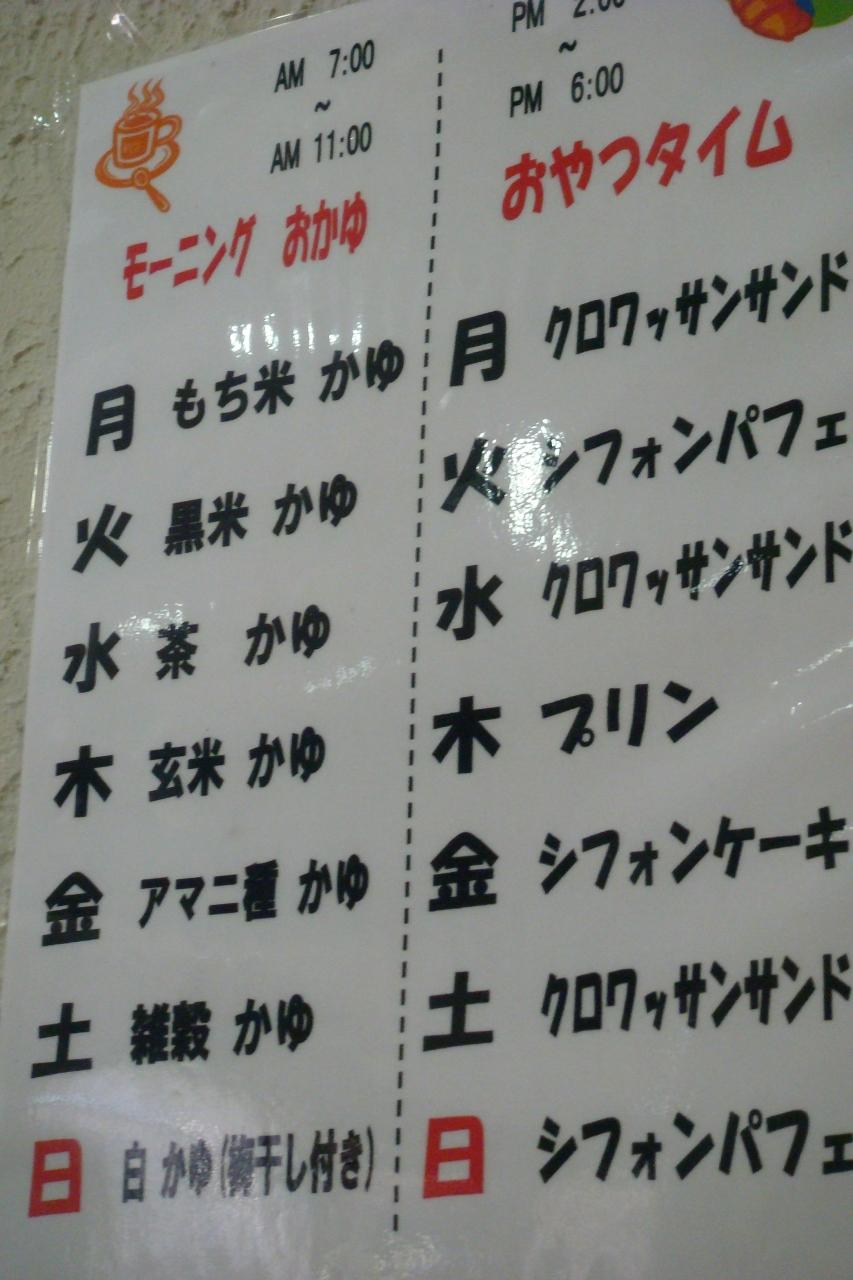 AM 7:00
~
AM 11:00
モーニング おかゆ
月 もち米 かゆ
火 黒米 かゆ
水 茶 かゆ
木 玄米 かゆ
金 アマニ種 かゆ
土 雑穀 かゆ
日 白 かゆ(梅干し付き)
PM 2:00
~
PM 6:00
おやつタイム
月 クロワッサンサンド
火 シフォンパフェ
水 クロワッサンサンド
木 プリン
金 シフォンケーキ
土 クロワッサンサンド
日 シフォンパフェ